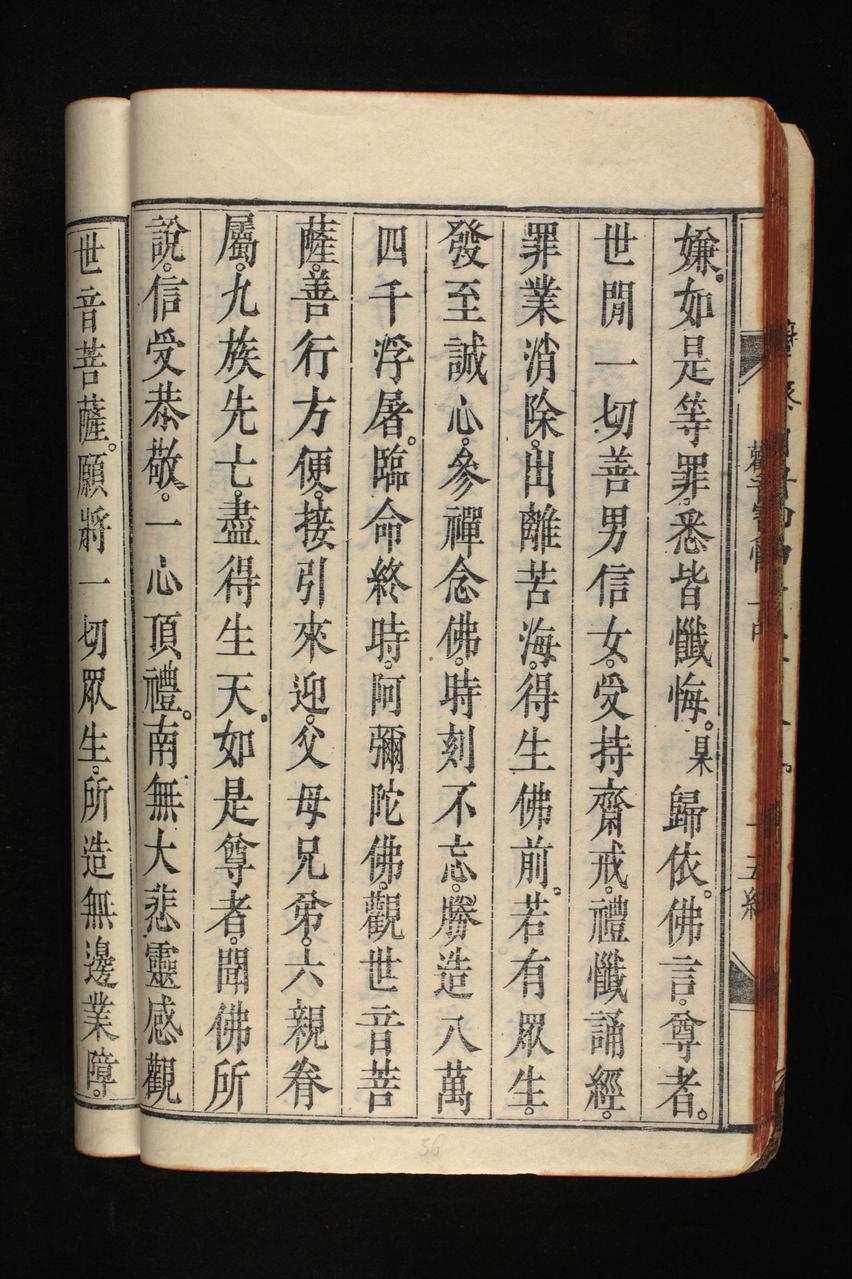 嫌。如是等罪。悉皆懺悔。某歸依。佛言。尊者。
世閒一切善男信女。受持齋戒。禮懺誦經。
罪業消除。出離苦海。得生佛前。若有眾生。
發至誠心。參禪念佛。時刻不忘。勝造八萬
四千浮屠。臨命終時。阿彌陀佛。觀世音菩
薩。善行方便。接引來迎。父母兄弟。六親眷
屬。九族先亡。盡得生天。如是尊者。聞佛所
說。信受恭敬。一心頂禮。南無大悲靈感觀
世音菩薩。願將一切眾生。所造無邊業障。
36